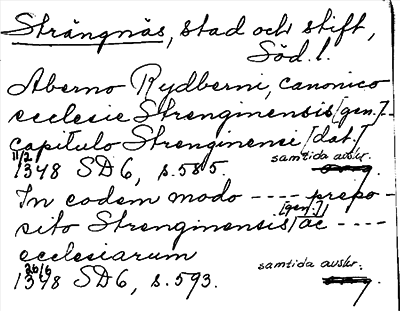 Strängnäs, stad och stift,
Söd. l.
Aberno Rydberni, canonico
ecclesie Strenginensis [gen.] --
capitulo Strenginensi [dat.]
11/2 1348 SD6, s. 585. samtida avskr.
In eodem modo ---- prepo-
sito Strenginensis [gen.] ac ----
ecclesiarum
26/6 1348 SD6, s. 593. samtida avskr.